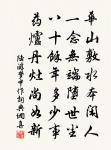 華山敷水本閑人
一念無端墮世塵
八十餘年多少事
藥爐丹竈尚如新
陸游夢中作詞典網寫